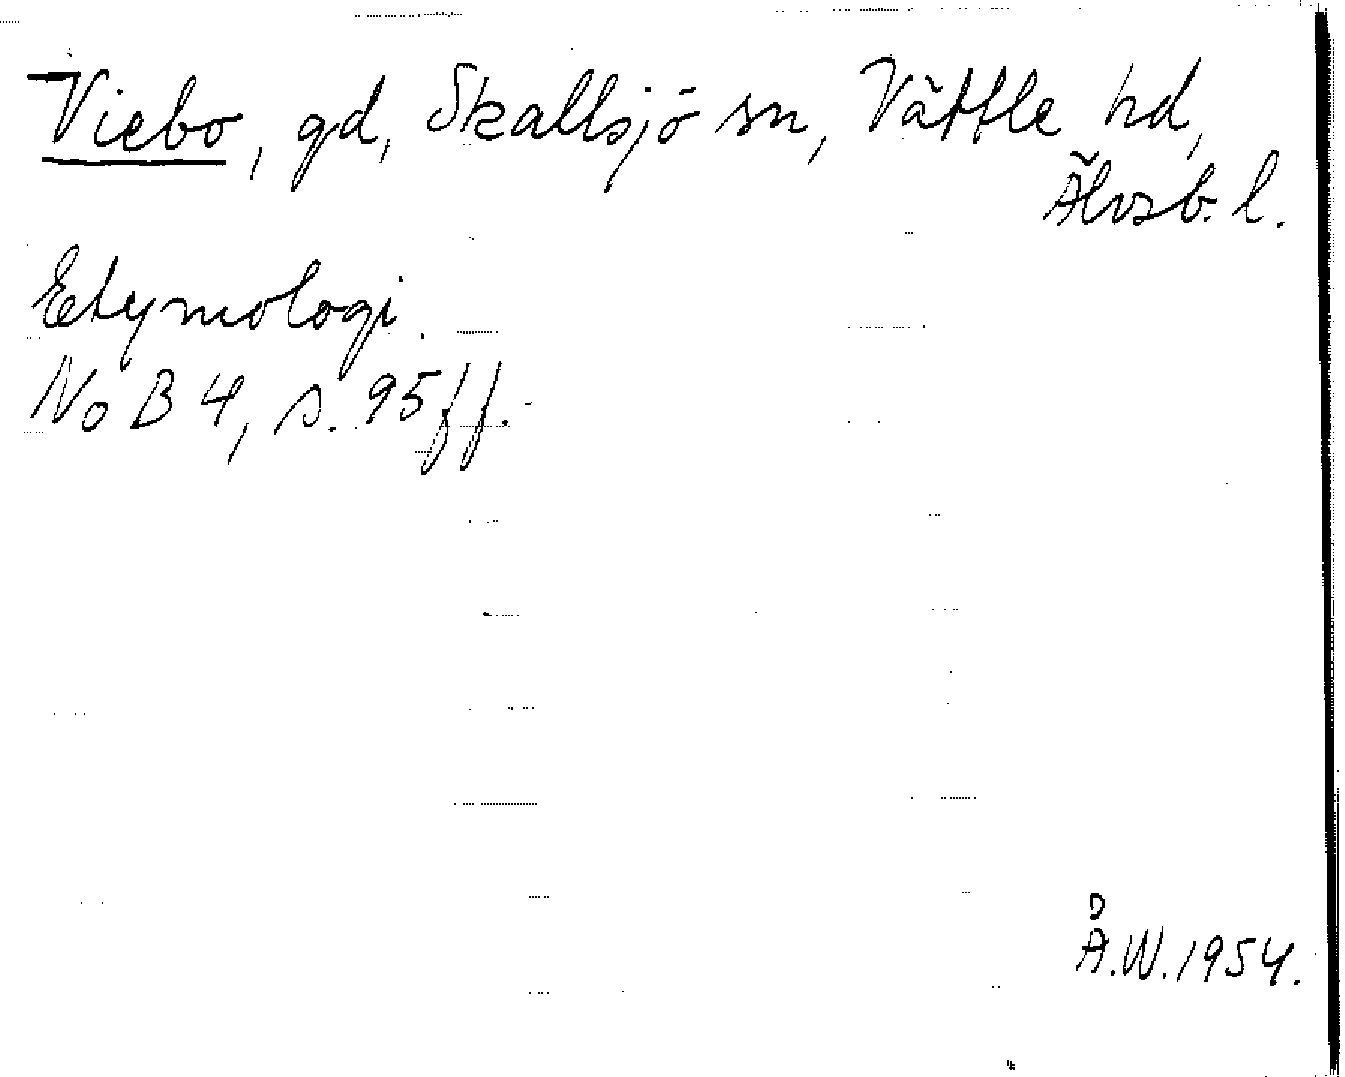 Viebo, gd, Skallsjö sn, Vättle hd,
Älvsb. l.
Etymologi.
NoB 4, s. 95 ff.
Å.W. 1954.